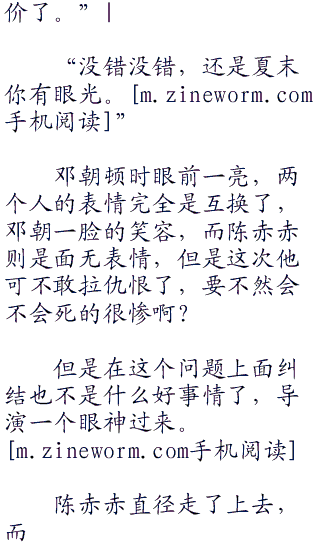 价了。”|
“没错没错，还是夏末
你有眼光。[m.zineworm.com
手机阅读]”
邓朝顿时眼前一亮，两
个人的表情完全是互换了，
邓朝一脸的笑容，而陈赤赤
则是面无表情，但是这次他
可不敢拉仇恨了，要不然会
不会死的很惨啊？
但是在这个问题上面纠
结也不是什么好事情了，导
演一个眼神过来。
[m.zineworm.com手机阅读]
陈赤赤直径走了上去，
而